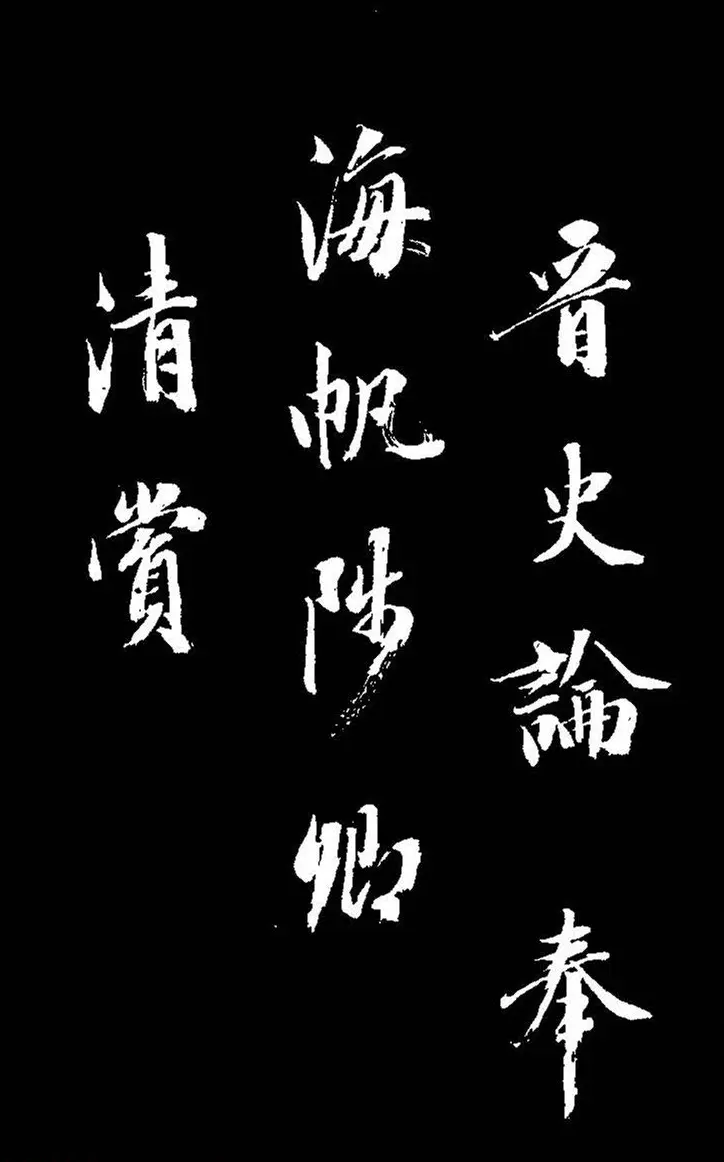 晉史論奉
海帆陟卿
清賞